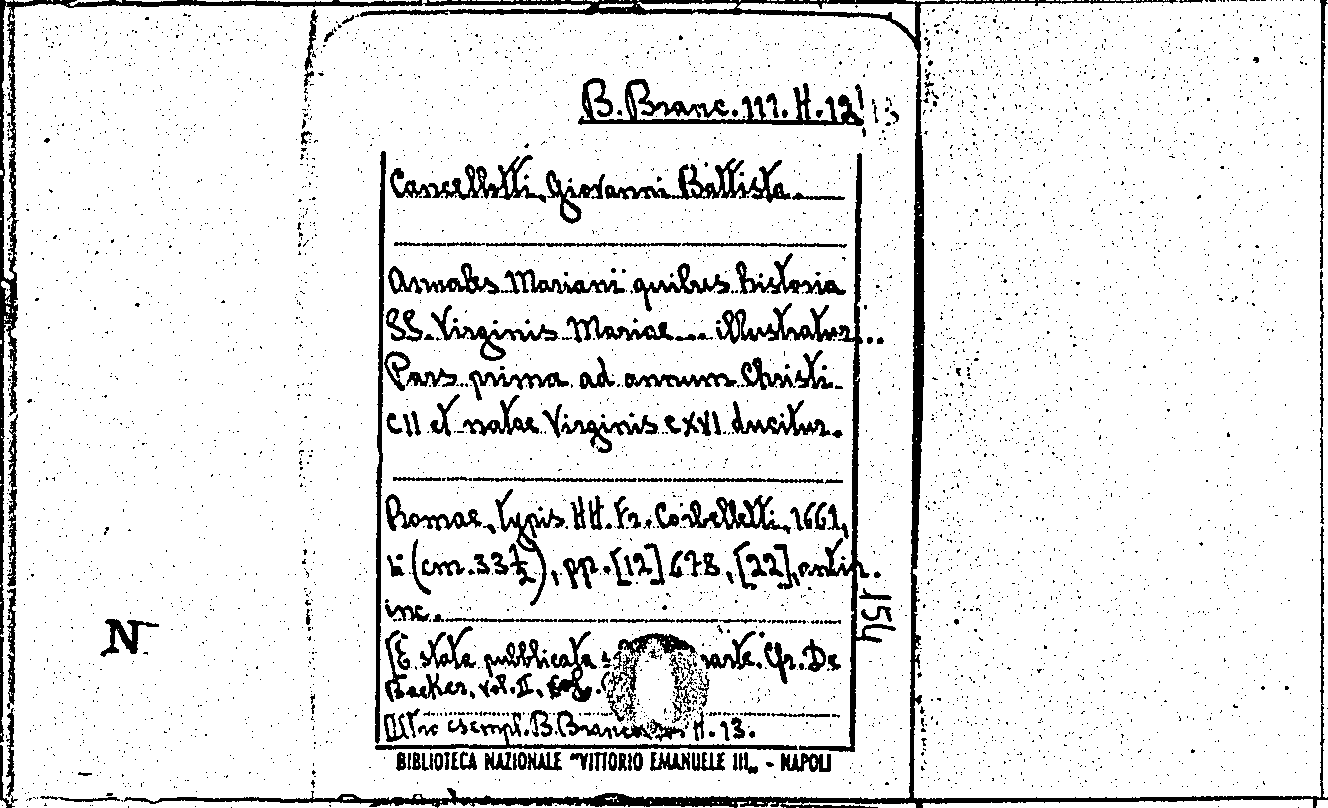 B. Branc. III. H. 12/13
Cancellotti, Giovanni Battista.
Annales Mariani quibus historia
SS. Virginis Mariae... illustratur...
Pars prima ad annum Christi
CII et natae Virginis CXVI ducitur.
Romae, typis HH. Fr. Corbelletti, 1661,
(cm. 33 ½), pp. [12] 678, [22], antip.
inc.
[È stata pubblicata parte. Cfr. De
Backer, vol. II,
Altro esempl. B. Branc. H. 13.
BIBLIOTECA NAZIONALE "VITTORIO EMANUELE III" - NAPOLI
154
N